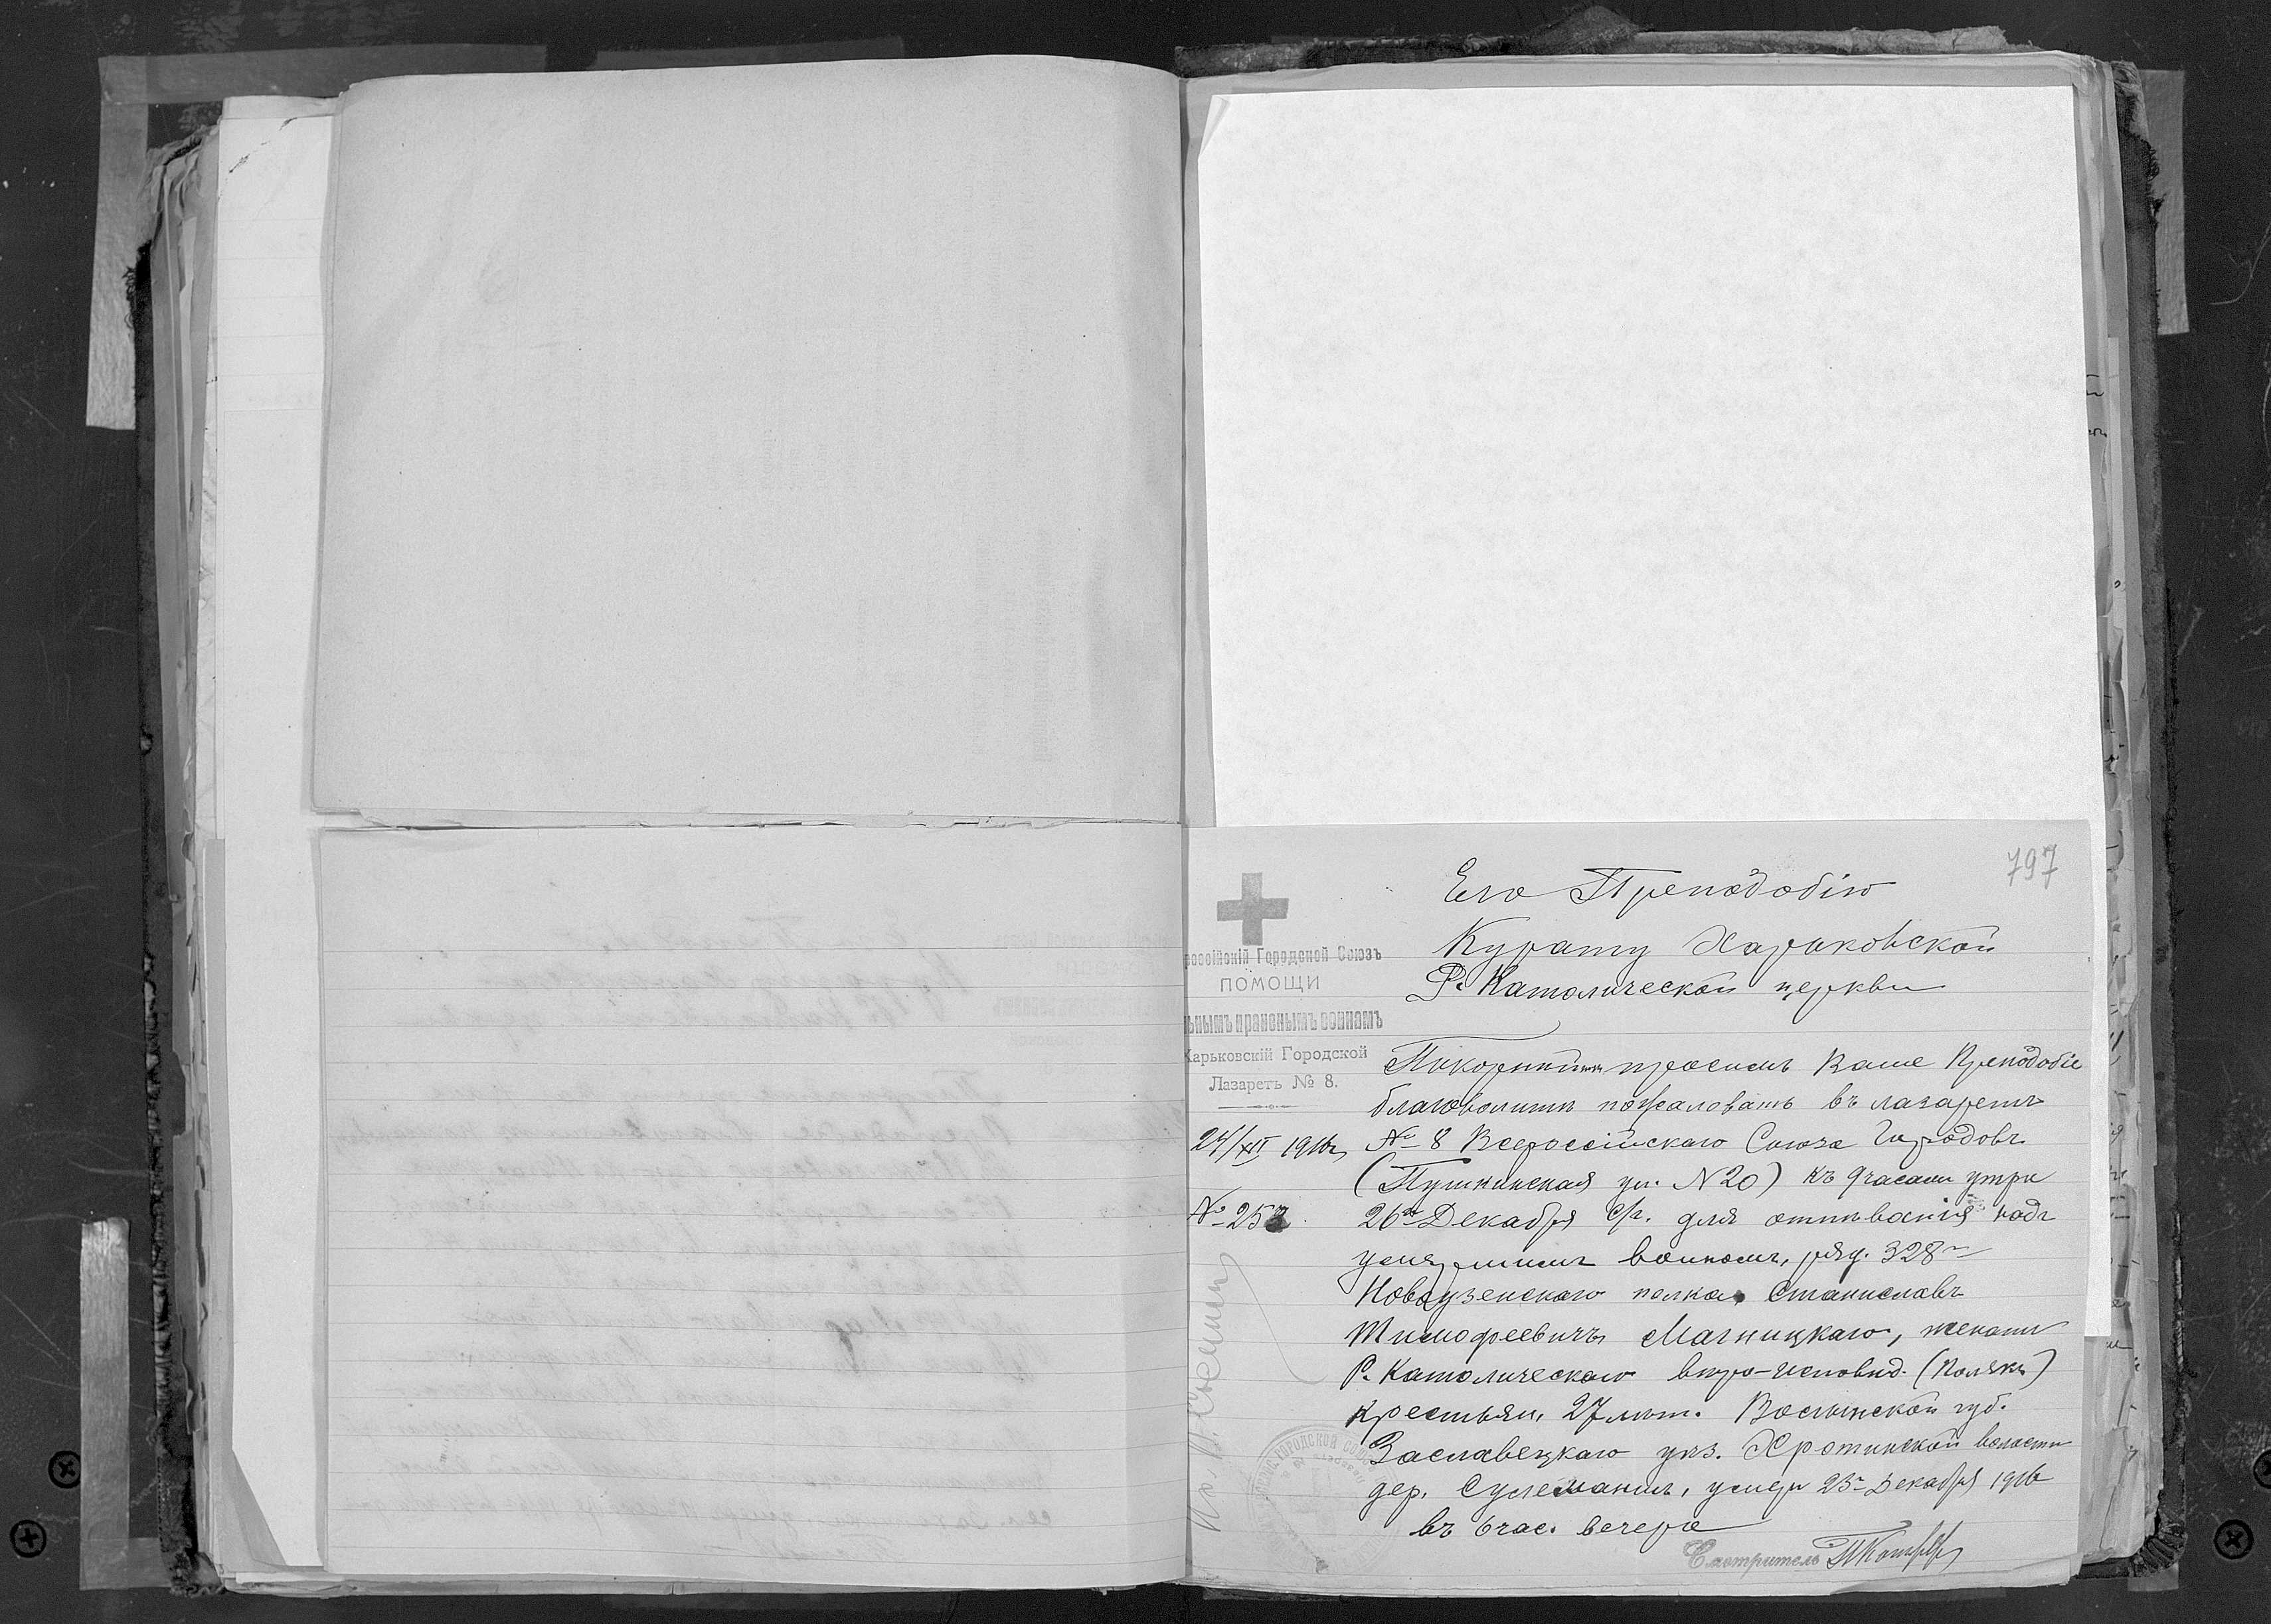 797
Его Преподобію
Курату Харьковской
Р. Католической церкви
россійскій Городской Союзъ
ПОМОЩИ
ьнымъ и раненымъ воинамъ
Харьковскій Городской
Лазаретъ № 8.
24/XII 1916 г.
№ 25
Покорнѣйше просимъ Ваше Преподобіе
благоволить пожаловать въ лазаретъ
№ 8 Всероссійскаго Союза Городовъ
(Пушкинская ул. N 20) къ 9 часамъ утра
26го Декабря с/г. для отпѣванія надъ
умершимъ воиномъ, ряд. 328го
Новоузенскаго полка Станиславъ
Тимофеевичъ Магницкаго, женатъ
Р. Католическаго вѣро-исповѣд. (Полякъ)
крестьян. 27 лѣт. Волынской губ.
Заславецкаго уѣз. волости
дер. умеръ 23го Декабря 1916
въ 6 час. вечера
Смотритель